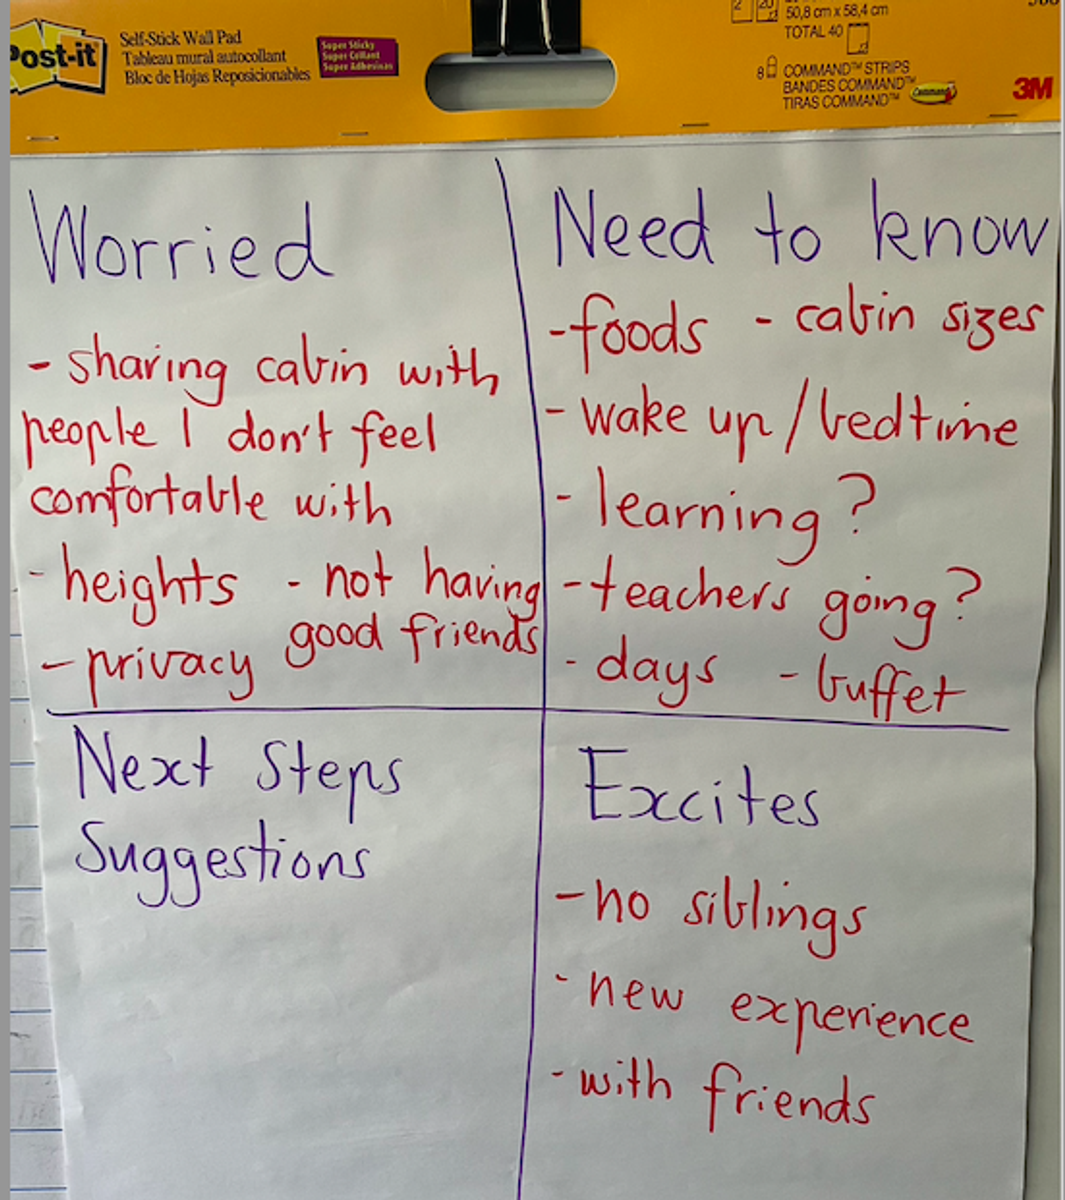 Post-it
Self-Stick Wall Pad
Tableau mural autocollant
Bloc de Hojas Reposicionables
Super Sticky
Super Collant
Super Adhesivas
50,8 cm x 58,4 cm
TOTAL 40
8
COMMAND™ STRIPS
BANDES COMMAND™
TIRAS COMMAND™
Command
3M
Worried
- sharing cabin with
people I don't feel
comfortable with
- heights - not having
good friends
- privacy
Need to know
- foods - cabin sizes
- wake up / bedtime
- learning?
- teachers going?
- days - buffet
Next Steps
Suggestions
Excites
- no siblings
- new experience
- with friends